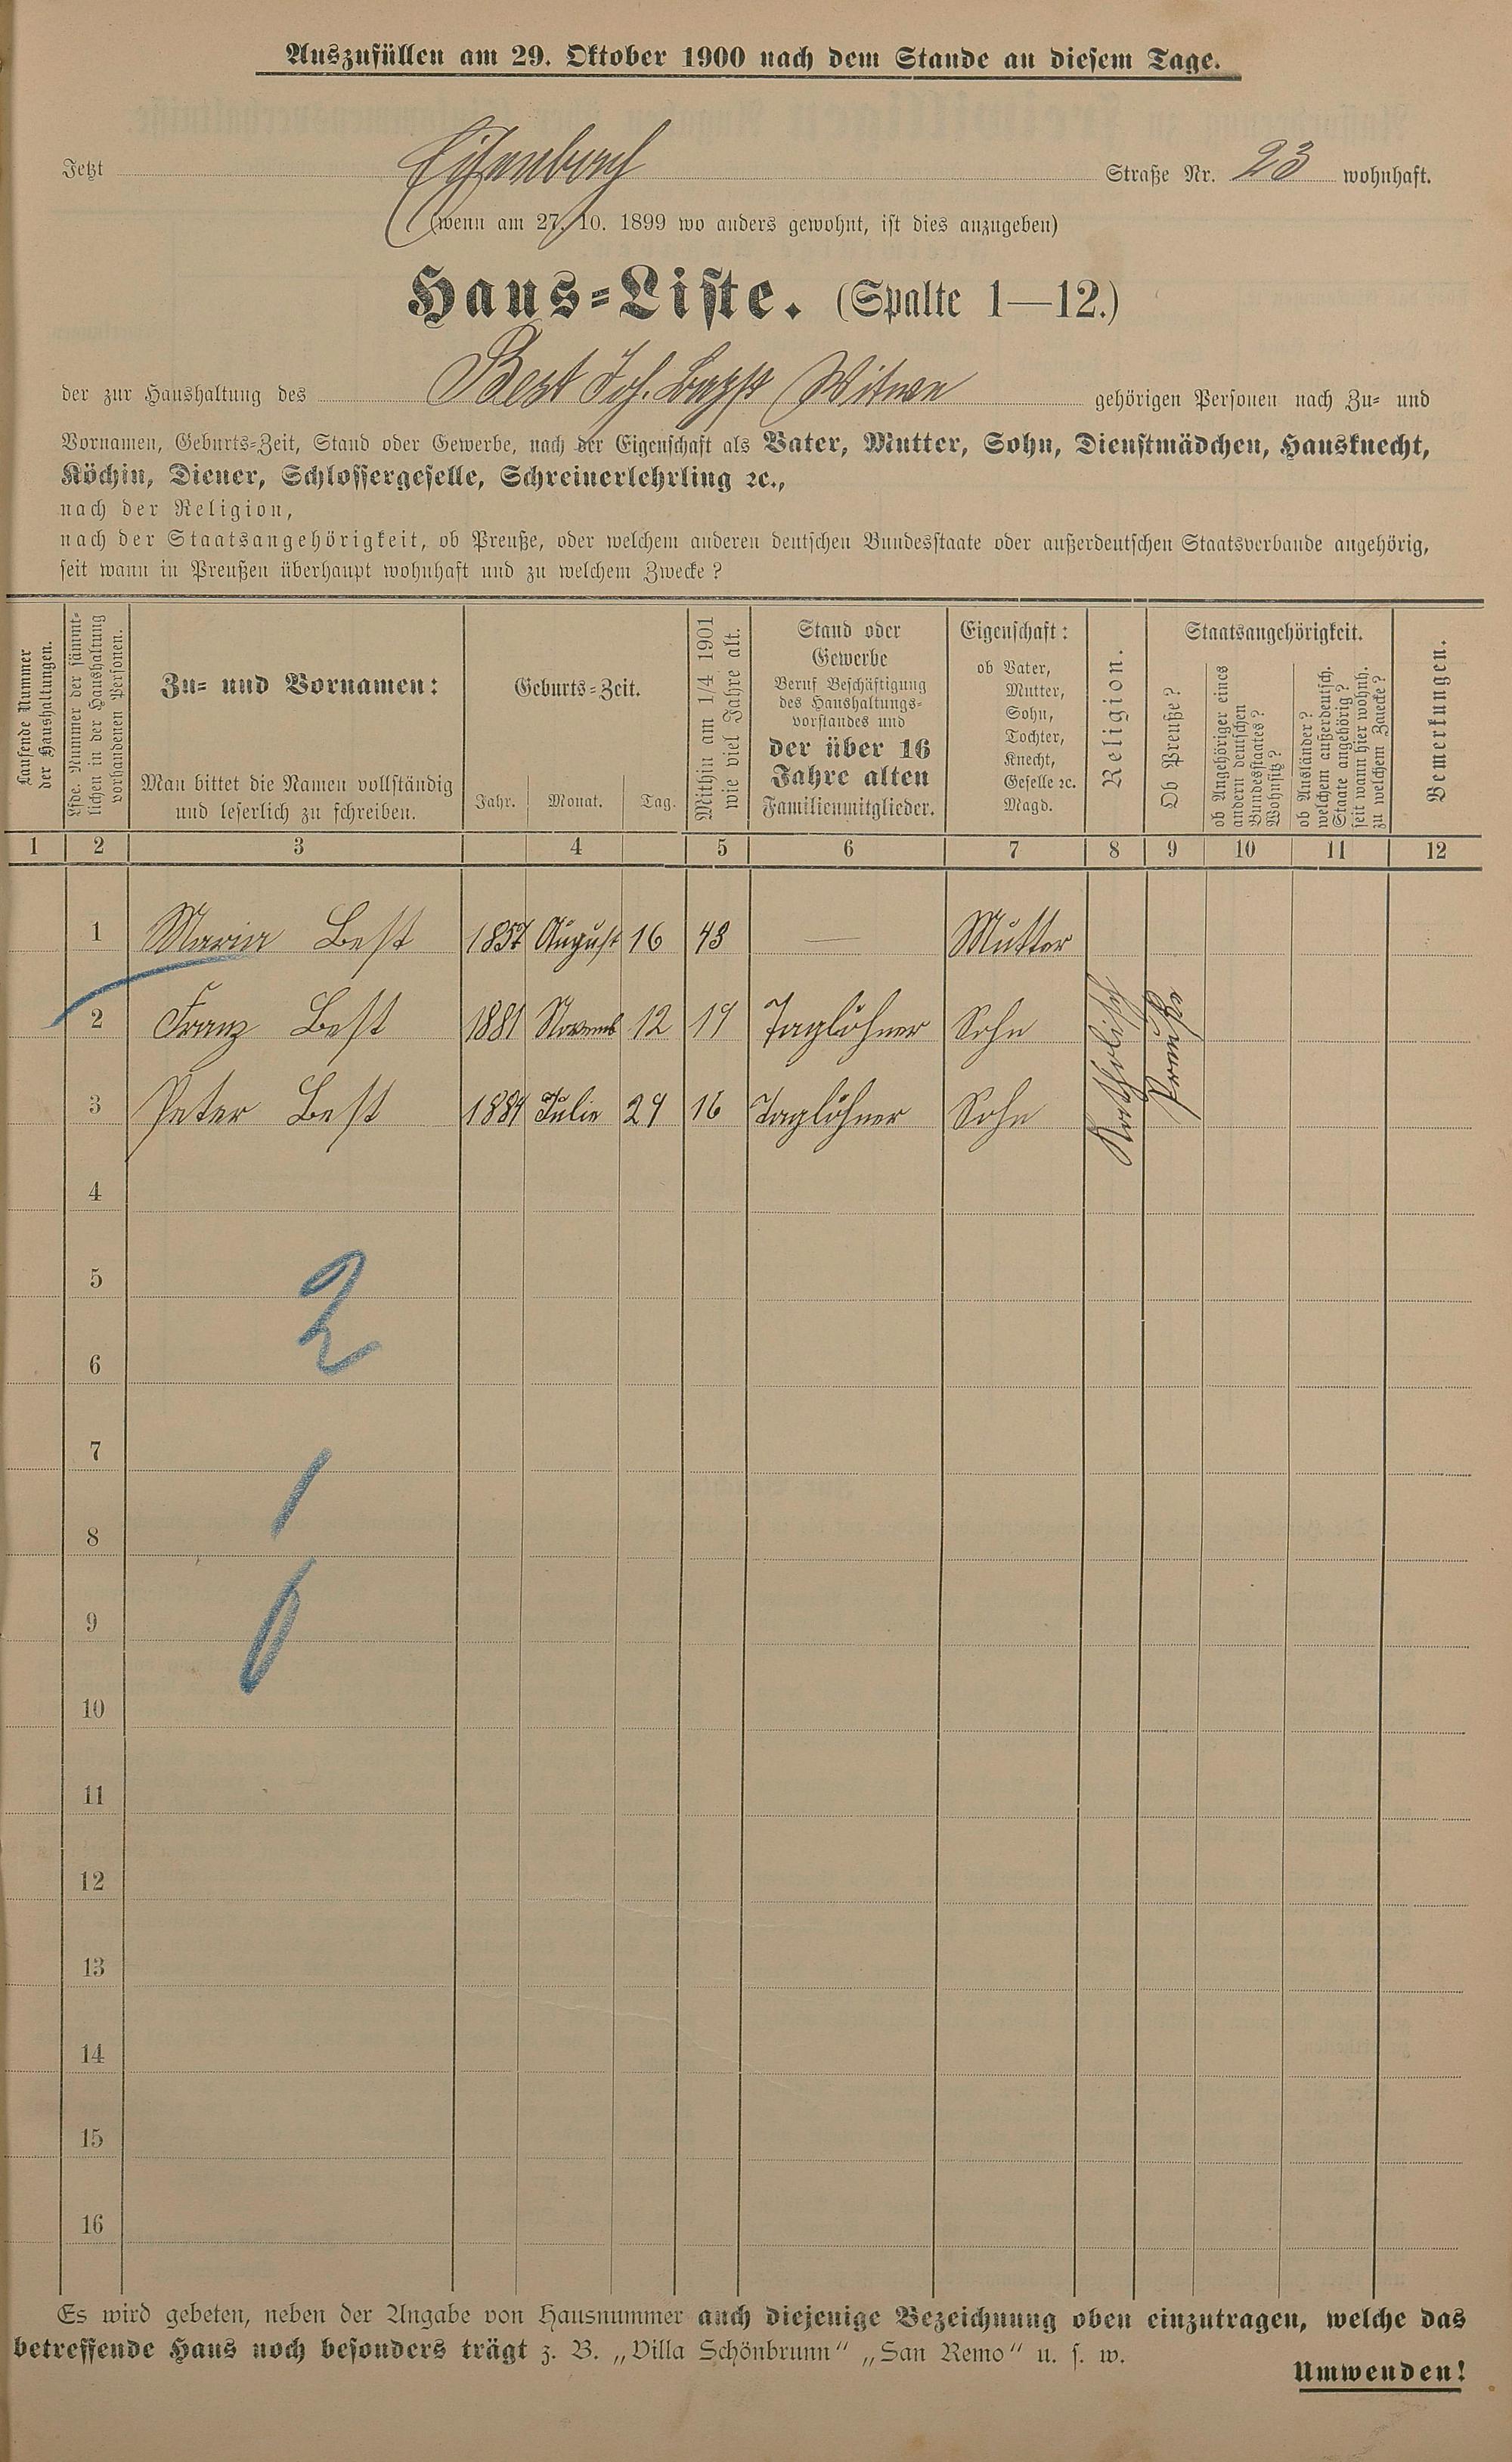 Auszufüllen am 29. Oktober 1900 nach dem Stande an diesem Tage.
Jetzt Eisenbach Straße Nr. 23 wohnhaft.
(wenn am 27. 10. 1899 wo anders gewohnt, ist dies anzugeben)
Haus-Liste. (Spalte 1—12.)
der zur Haushaltung des Best Joh. Witwe gehörigen Personen nach Zu- und
Vornamen, Geburts-Zeit, Stand oder Gewerbe, nach der Eigenschaft als Vater, Mutter, Sohn, Dienstmädchen, Hausknecht,
Köchin, Diener, Schlossergeselle, Schreinerlehrling ꝛc.,
nach der Religion,
nach der Staatsangehörigkeit, ob Preuße, oder welchem anderen deutschen Bundesstaate oder außerdeutschen Staatsverbande angehörig,
seit wann in Preußen überhaupt wohnhaft und zu welchem Zwecke?
Laufende Nummer
der Haushaltungen.
Lfde. Nummer der sämmt-
lichen in der Haushaltung
vorhandenen Personen.
Zu- und Vornamen:
Man bittet die Namen vollständig
und leserlich zu schreiben.
Geburts-Zeit.
Jahr. Monat. Tag.
Mithin am 1/4 1901
wie viel Jahre alt.
Stand oder
Gewerbe
Beruf Beschäftigung
des Haushaltungs-
vorstandes und
der über 16
Jahre alten
Familienmitglieder.
Eigenschaft:
ob Vater,
Mutter,
Sohn,
Tochter,
Knecht,
Geselle ꝛc.
Magd.
Religion.
Staatsangehörigkeit.
Ob Preuße?
ob Angehöriger eines
andern deutschen
Bundesstaates?
Wohnsitz?
ob Ausländer?
welchem außerdeutsch.
Staate angehörig?
seit wann hier wohnh.
zu welchem Zwecke?
Bemerkungen.
1 2 3 4 5 6 7 8 9 10 11 12
1 Maria Best 1857 August 16 43 — Mutter
2 Franz Best 1881 Novemb 12 19 Taglöhner Sohn
3 Peter Best 1884 Julie 29 16 Taglöhner Sohn
Katholisch
Preuße
4
5
2
6
7
1
8
9
0
10
11
12
13
14
15
16
Es wird gebeten, neben der Angabe von Hausnummer auch diejenige Bezeichnung oben einzutragen, welche das
betreffende Haus noch besonders trägt z. B. „Villa Schönbrunn“ „San Remo“ u. s. w.
Umwenden!